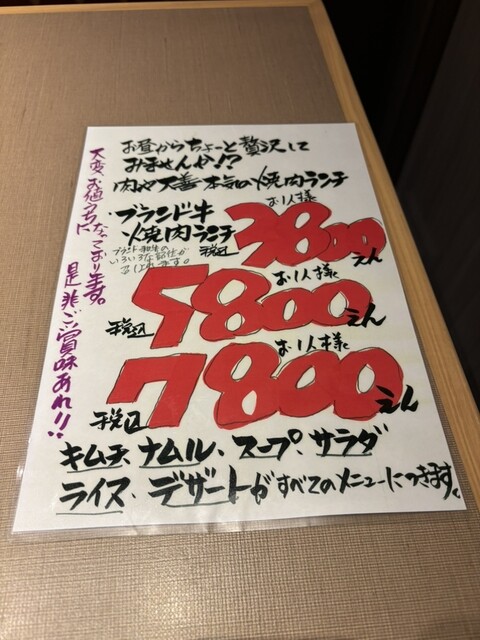 お昼からちょーと贅沢して
みませんか!?
肉や大善 本気の焼肉ランチ
・ブランド牛
焼肉ランチ
ブランド和牛の
いろいろな部位が
楽しめます。
お1人様
税込 3800えん
お1人様
税込 5800えん
お1人様
税込 7800えん
キムチ、ナムル、スープ、サラダ
ライス、デザートがすべてのメニューにつきます。
大変お値うちになっております。
是非ご賞味あれ!!